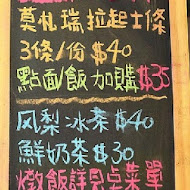 莫札瑞拉起士條
3條/份 $40
點面/飯 加購$35
凤梨冰茶 $40
鮮奶茶 $30
燉飯詳見桌菜單